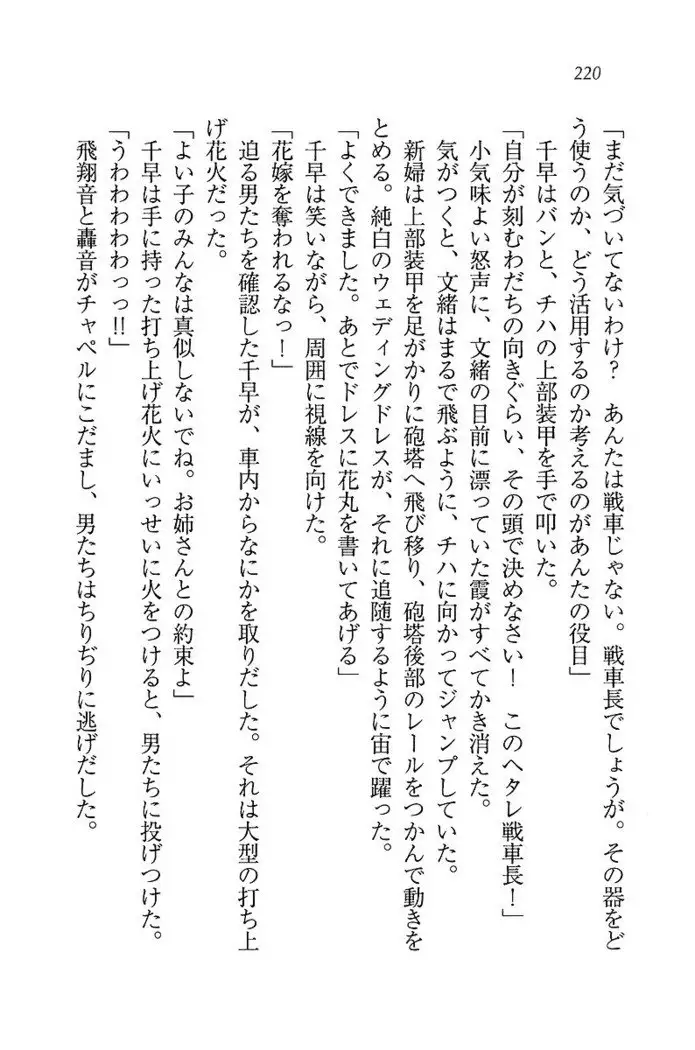 220
「まだ気づいてないわけ？　あんたは戦車じゃない。戦車長でしょうが。その器をど
う使うのか、どう活用するのか考えるのがあんたの役目」
千早はバンと、チハの上部装甲を手で叩いた。
「自分が刻むわだちの向きぐらい、その頭で決めなさい！　このヘタレ戦車長！」
小気味よい怒声に、文緒の目前に漂っていた霞がすべてかき消えた。
気がつくと、文緒はまるで飛ぶように、チハに向かってジャンプしていた。
新婦は上部装甲を足がかりに砲塔へ飛び移り、砲塔後部のレールをつかんで動きを
とめる。純白のウェディングドレスが、それに追随するように宙で躍った。
「よくできました。あとでドレスに花丸を書いてあげる」
千早は笑いながら、周囲に視線を向けた。
「花嫁を奪われるなっ！」
迫る男たちを確認した千早が、車内からなにかを取りだした。それは大型の打ち上
げ花火だった。
「よい子のみんなは真似しないでね。お姉さんとの約束よ」
千早は手に持った打ち上げ花火にいっせいに火をつけると、男たちに投げつけた。
「うわわわわわっっ!!」
飛翔音と轟音がチャペルにこだまし、男たちはちりぢりに逃げだした。